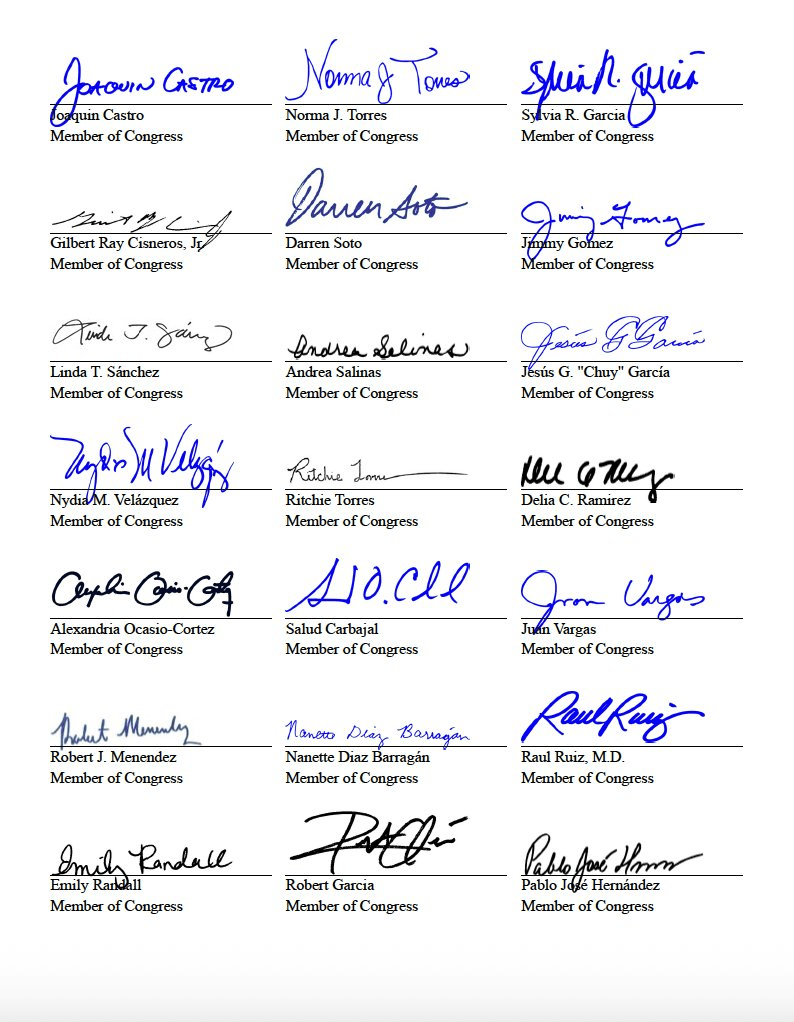 Joaquin Castro Norma J Torres Sylvia R. Garcia
Joaquin Castro Norma J. Torres Sylvia R. Garcia
Member of Congress Member of Congress Member of Congress
Darren Soto Jimmy Gomez
Gilbert Ray Cisneros, Jr. Darren Soto Jimmy Gomez
Member of Congress Member of Congress Member of Congress
Linda T. Sánchez Andrea Salinas Jesús G García
Linda T. Sánchez Andrea Salinas Jesús G. "Chuy" García
Member of Congress Member of Congress Member of Congress
Nydia M Velázquez Ritchie Torres
Nydia M. Velázquez Ritchie Torres Delia C. Ramirez
Member of Congress Member of Congress Member of Congress
Juan Vargas
Alexandria Ocasio-Cortez Salud Carbajal Juan Vargas
Member of Congress Member of Congress Member of Congress
Robert Menendez Nanette Diaz Barragán Raul Ruiz
Robert J. Menendez Nanette Diaz Barragán Raul Ruiz, M.D.
Member of Congress Member of Congress Member of Congress
Emily Randall Pablo José
Emily Randall Robert Garcia Pablo José Hernández
Member of Congress Member of Congress Member of Congress